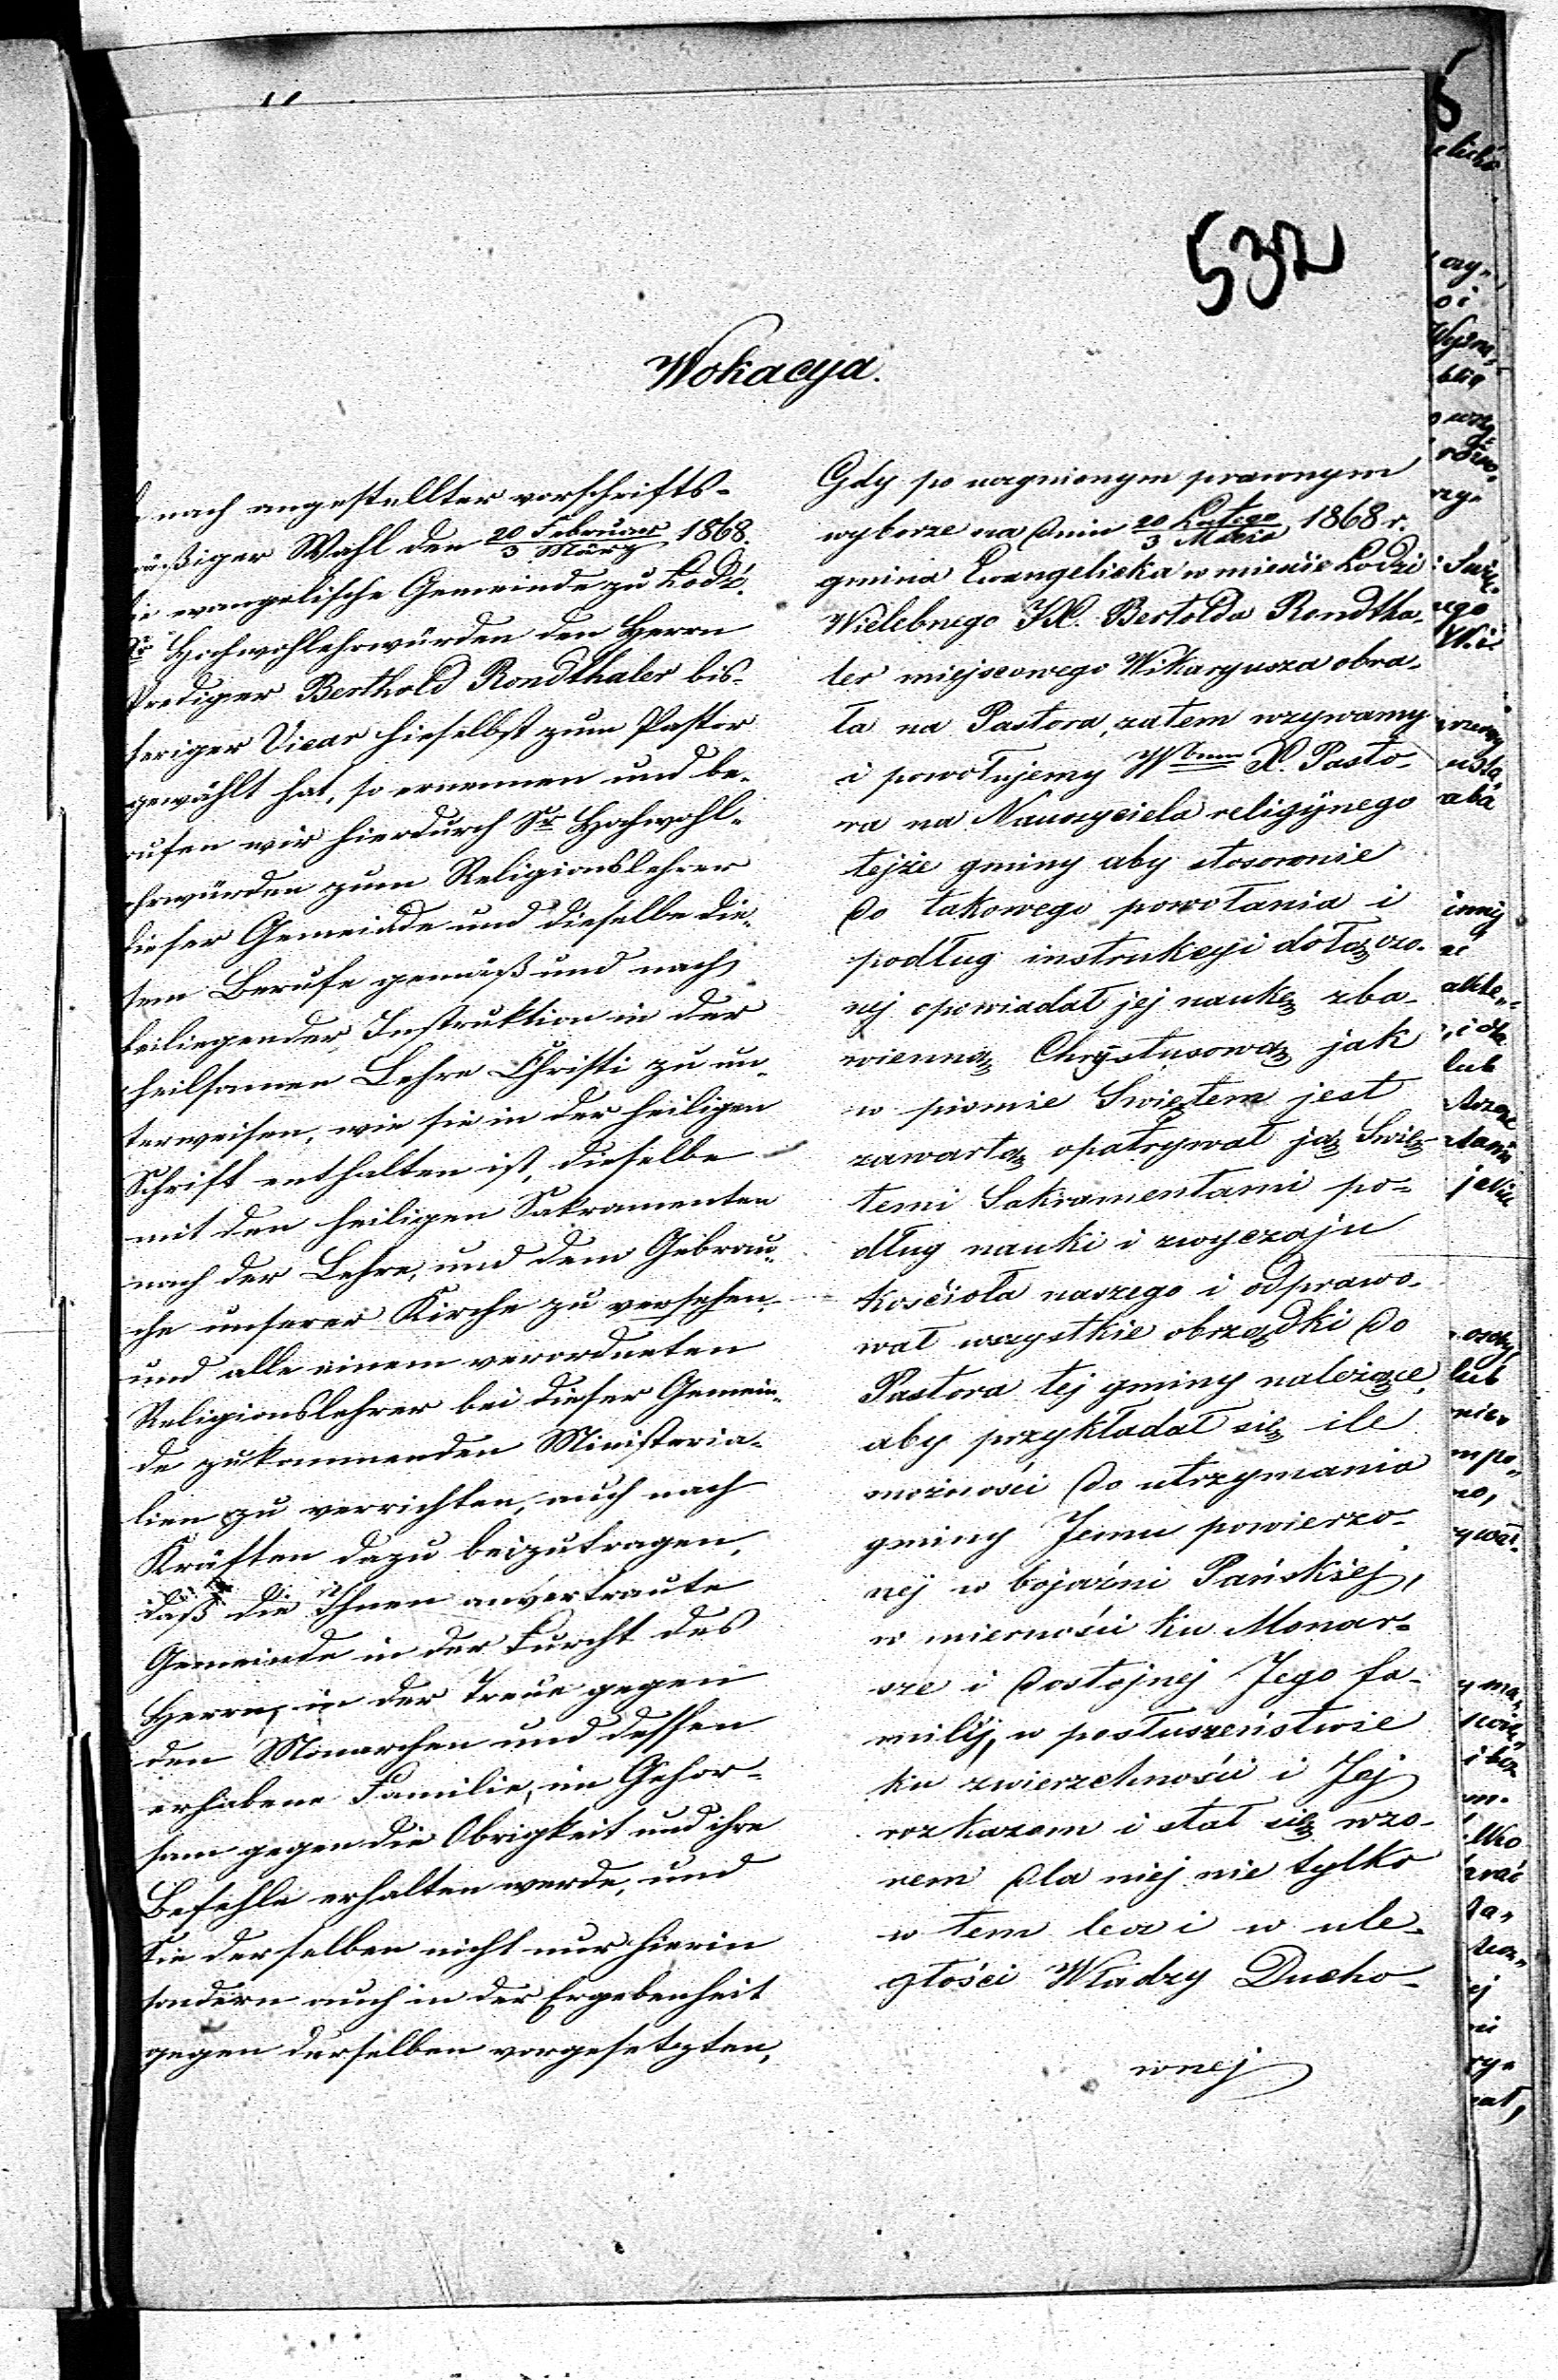 532
Wokacya.
nach angestellter vorschrifts-
mäßiger Wahl den 20 Februar / 3 März 1868.
die evangelische Gemeinde zu Lodź.
Sr Hochwohlehrwürden den Herrn
Prediger Berthold Rondthaler bis-
heriger Vicar hieselbst zum Pastor
gewählt hat, so ernennen und be-
rufen wir hierdurch Sr Hochwohl-
ehrwürden zum Religionslehrer
dieser Gemeinde und dieselbe die-
sem Berufe gemäß und nach
beiliegender Instruktion in der
heilsamen Lehre Christi zu un-
terweisen, wie sie in der heiligen
Schrift enthalten ist, dieselbe
mit den heiligen Sakramenten
nach der Lehre, und dem Gebrau-
che unserer Kirche zu versehen,
und alle einem verordneten
Religionslehrer bei dieser Gemein-
de zukommenden Ministeria-
lien zu verrichten, auch nach
Kräften dazu beizutragen,
daß die Ihnen anvertraute
Gemeinde in der Furcht des
Herrn, in der Treue gegen
den Monarchen und dessen
erhabene Familie, im Gehor-
sam gegen die Obrigkeit und ihre
Befehle erhalten werde, und
Sie derselben nicht nur hierin
sondern auch in der Ergebenheit
gegen derselben vorgesetzten,
Gdy po uczynionym prawnym
wyborze na dniu 20 Lutego / 3 Marca 1868 r.
gmina Ewangelicka w mieście Łodzi
Wielebnego JX. Bertolda Rondtha-
ler miejscowego Wikaryusza obra-
ła na Pastora, zatem wzywamy
i powołujemy Wbnm X. Pasto-
ra na Nauczyciela religijnego
tejże gminy aby stosownie
do takowego powołania i
podług instrukcyi dołączo-
nej opowiadał jej naukę zba-
wienną Chrystusową jak
w piśmie Swiętem jest
zawarta, opatrywał ją Swię-
temi Sakramentami po-
dług nauki i zwyczaju
kościoła naszego i odprawo-
wał wszystkie obrządki do
Pastora tej gminy należące,
aby przykładał się ile
możności do utrzymania
gminy Jemu powierzo-
nej w bojaźni Pańskiej,
w wierności ku Monar-
sze i dostojnej Jego fa-
milij, w posłuszeństwie
ku zwierzchności i Jej
rozkazom i stał się wzo-
rem dla niej nie tylko
w tem lecz i w ule-
głości Władzy Ducho-
wnej